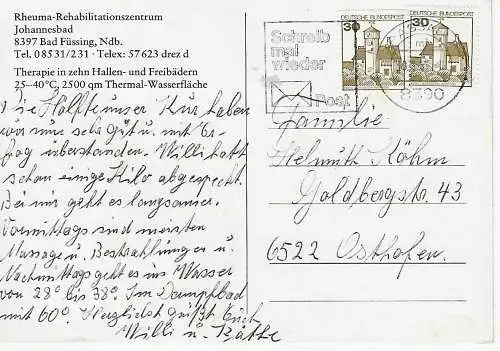 Rheuma-Rehabilitationszentrum
Johannesbad
8397 Bad Füssing, Ndb.
Tel. 08531/231 · Telex: 57623 drez d
Therapie in zehn Hallen- und Freibädern
25–40°C, 2500 qm Thermal-Wasserfläche
Die Hälfte unser Kur haben
wir nun sehr gut u. mit Er-
folg überstanden. Willi hatt
schon einige Kilo abgespeckt.
Bei mir geht es langsamer.
Vormittags sind meisten
Massage u. Bestrahlungen u
Nachmittags geht es ins Wasser
von 28° bis 38°. Im Dampfbad
mit 60°. Herzlichst grüßt Euch
Willi u. Käthe
Schreib
mal
wieder
Post
30 DEUTSCHE BUNDESPOST
30 DEUTSCHE BUNDESPOST
8390
Familie
Helmuth Köhm
Goldbergstr. 43
6522 Osthofen